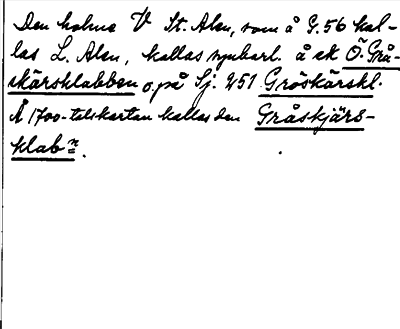 Den holme V St. Alen, som å G. 56 kal-
las L. Alen, kallas synbarl. å ek Ö. Grå-
skärsklabben o. på Sj. 251 Gröskärskl.
Å 1700-talskartan kallas den Gråskjärs-
klabn.